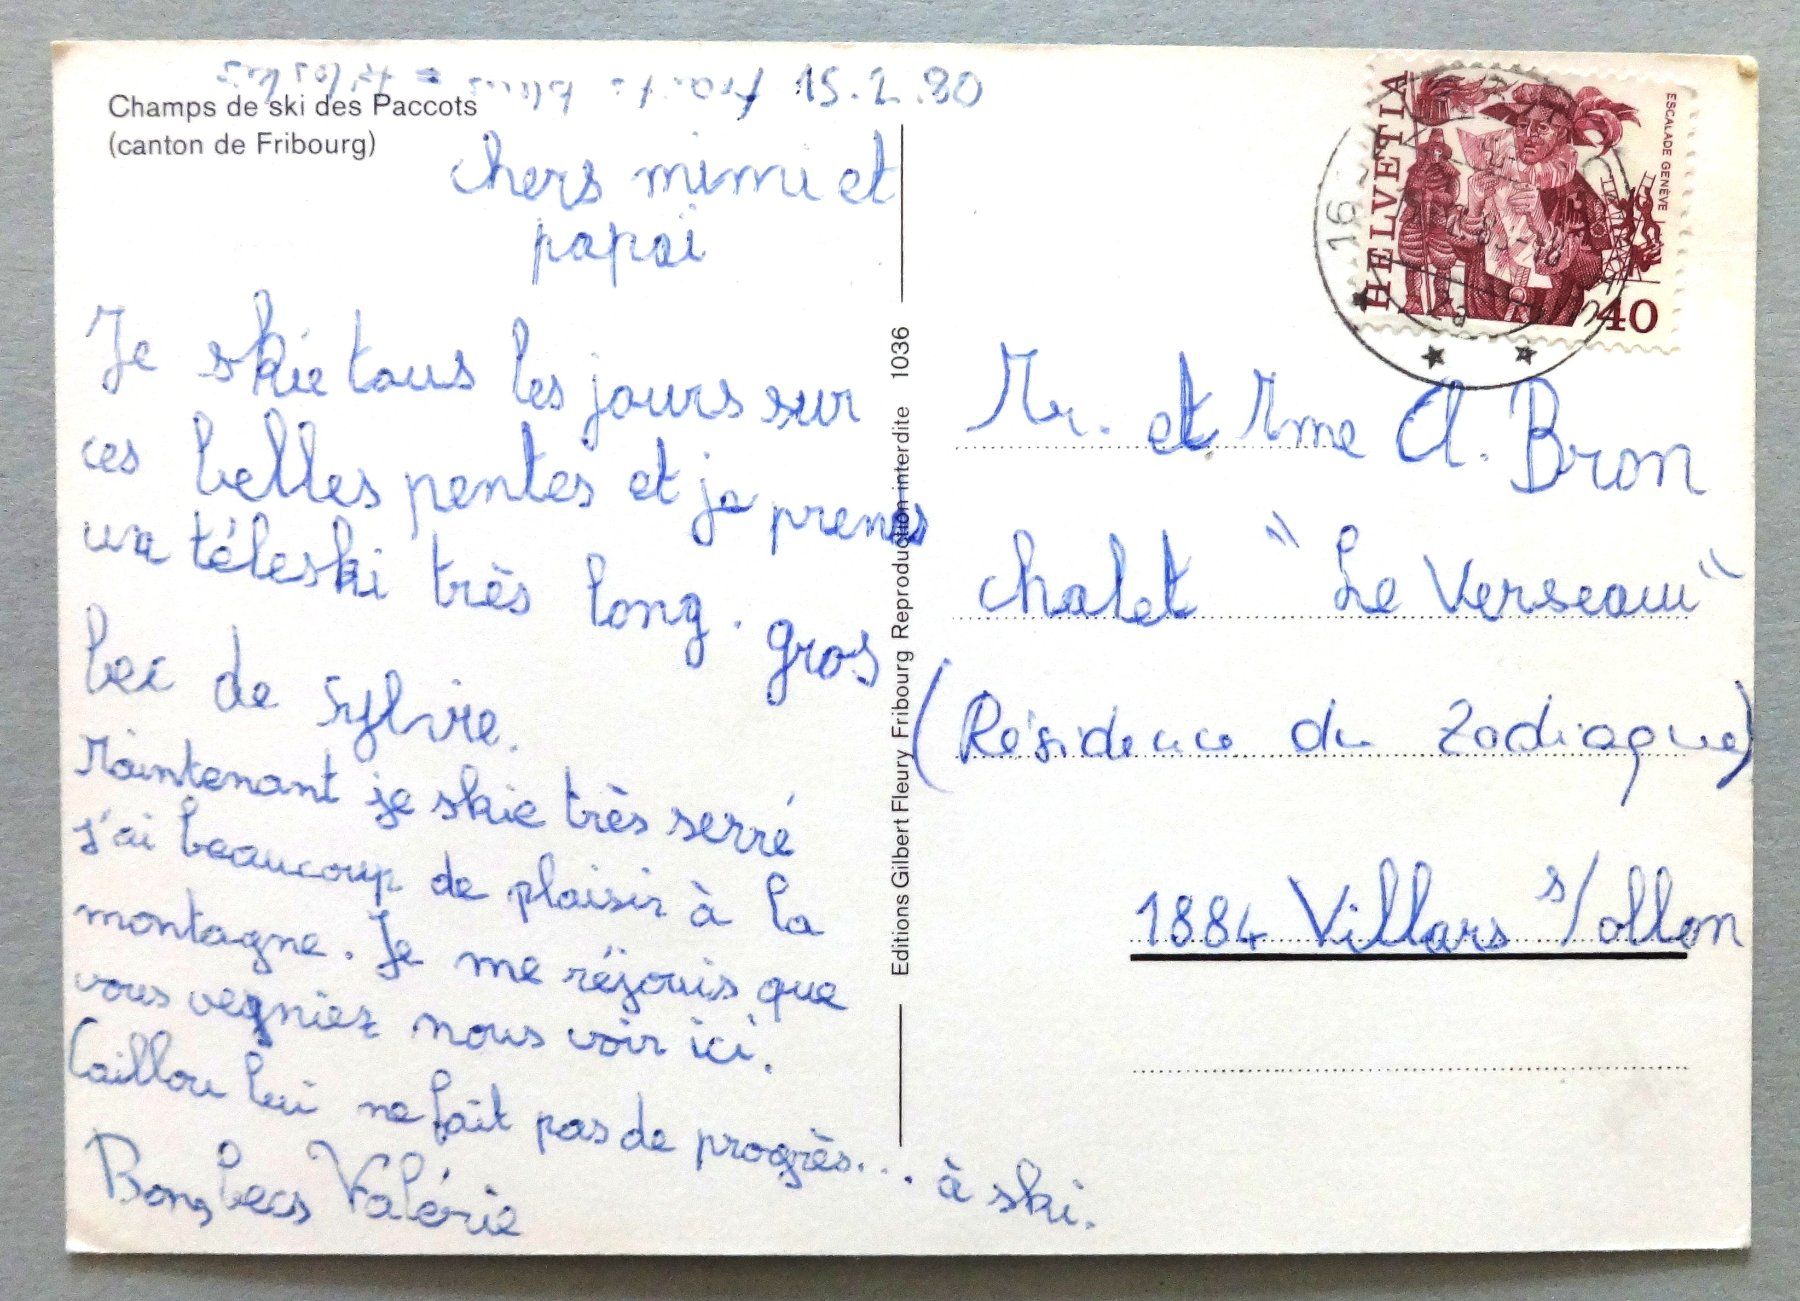 traits bleus = téléskis 15.2.80
Champs de ski des Paccots
(canton de Fribourg)
chers mimi et
papai
Je skie tous les jours sur
ces belles pentes et je prends
un téleski très long. gros
bec de Sylvie.
Maintenant je skie très serré
j'ai beaucoup de plaisir à la
montagne. Je me réjouis que
vous vegniez nous voir ici.
Caillou lui ne fait pas de progrès... à ski.
Bons becs Valérie
Editions Gilbert Fleury Fribourg Reproduction interdite 1036
HELVETIA
ESCALADE GENÈVE
40
16
Mr. et Mme A. Bron
chalet "Le Verseau"
(Résidence du Zodiaque)
1884 Villars s/ollon